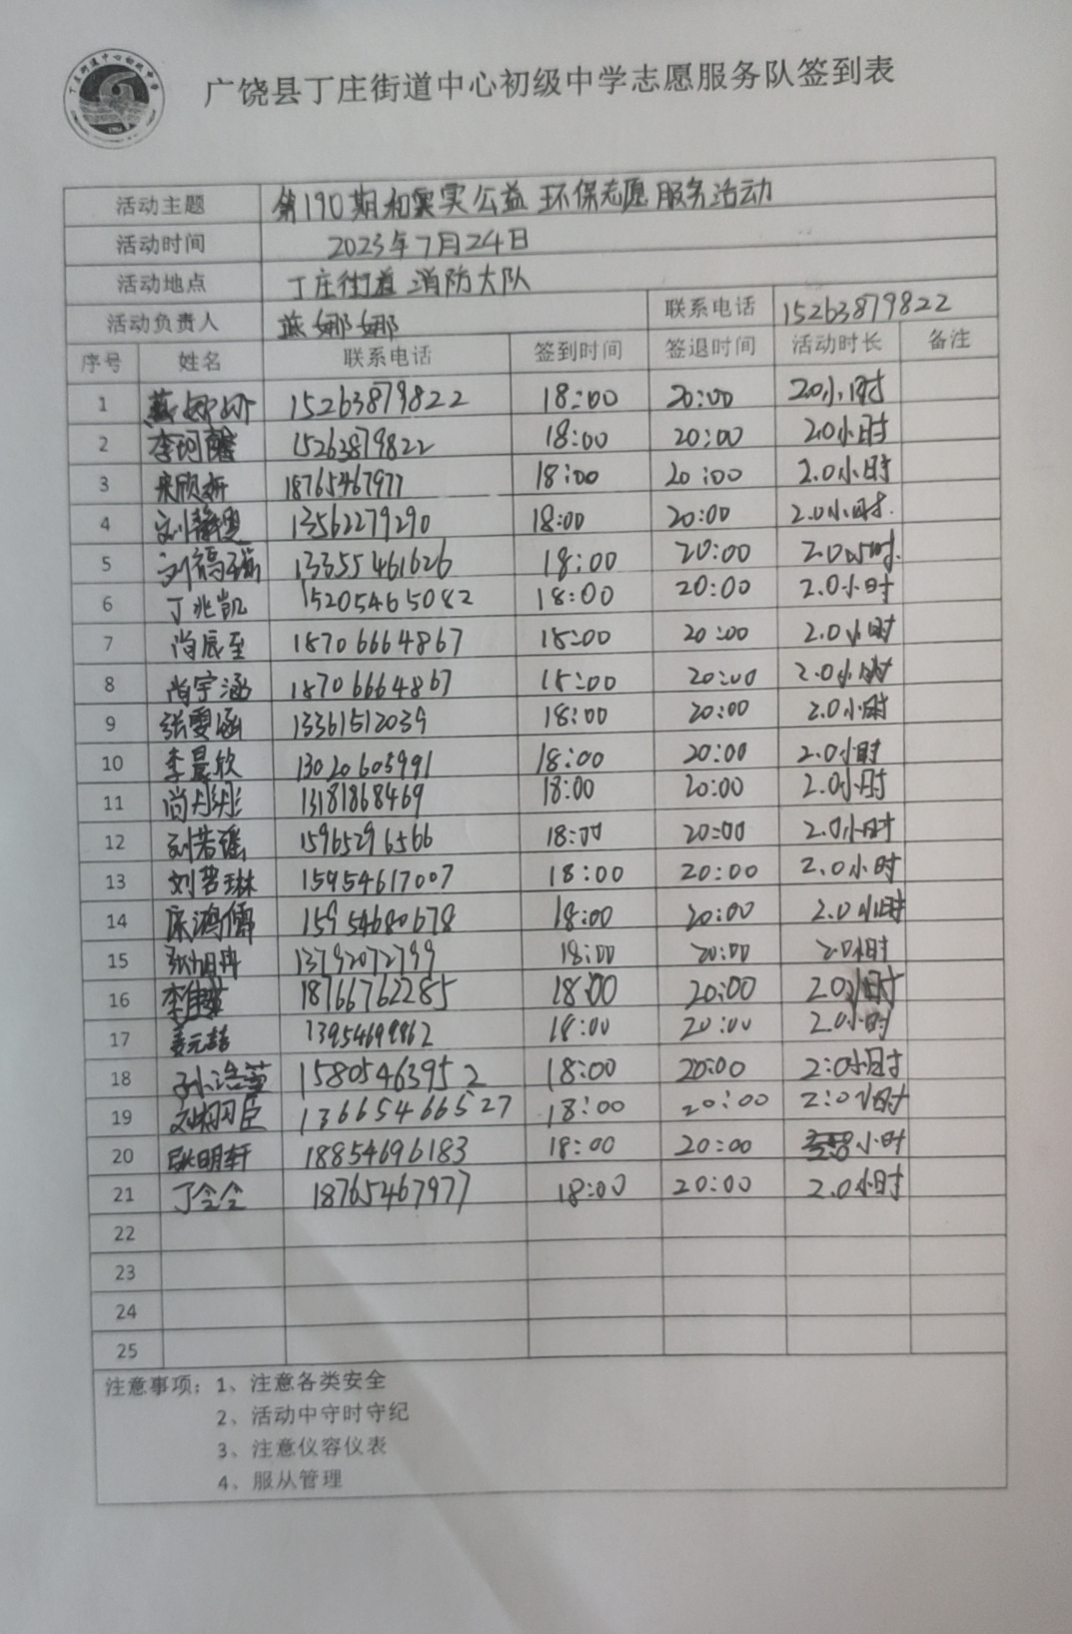 广饶县丁庄街道中心初级中学志愿服务队签到表
活动主题 第190期和实公益环保志愿服务活动
活动时间 2023年7月24日
活动地点 丁庄街道消防大队
活动负责人 燕娜娜 联系电话 15263879822
序号 姓名 联系电话 签到时间 签退时间 活动时长 备注
1 燕娜娜 15263879822 18:00 20:00 2.0小时
2 李珂馨 15263879822 18:00 20:00 2.0小时
3 宋欣妍 18765467977 18:00 20:00 2.0小时
4 刘静 13562279290 18:00 20:00 2.0小时.
5 刘福瑶 13355461626 18:00 20:00 2.0小时.
6 丁兆凯 15205465082 18:00 20:00 2.0小时
7 尚辰至 18706664867 18:00 20:00 2.0小时
8 尚宇涵 18706664867 18:00 20:00 2.0小时
9 张雯涵 13361512039 18:00 20:00 2.0小时
10 李晨欣 13020605991 18:00 20:00 2.0小时
11 尚彤彤 13181868469 18:00 20:00 2.0小时
12 刘若瑶 15965296566 18:00 20:00 2.0小时
13 刘若琳 15954617007 18:00 20:00 2.0小时
14 鸿儒 15954680678 18:00 20:00 2.0小时
15 张旭冉 13792072799 18:00 20:00 2.0小时
16 李佳 18766762285 18:00 20:00 2.0小时
17 姜元喆 18:00 20:00 2.0小时
18 孙浩萱 15805463952 18:00 20:00 2:0小时
19 刘栩臣 13665466527 18:00 20:00 2:0小时
20 耿明轩 18854696183 18:00 20:00 小时
21 丁会会 18765467977 18:00 20:00 2.0小时
22
23
24
25
注意事项：1、注意各类安全
2、活动中守时守纪
3、注意仪容仪表
4、服从管理